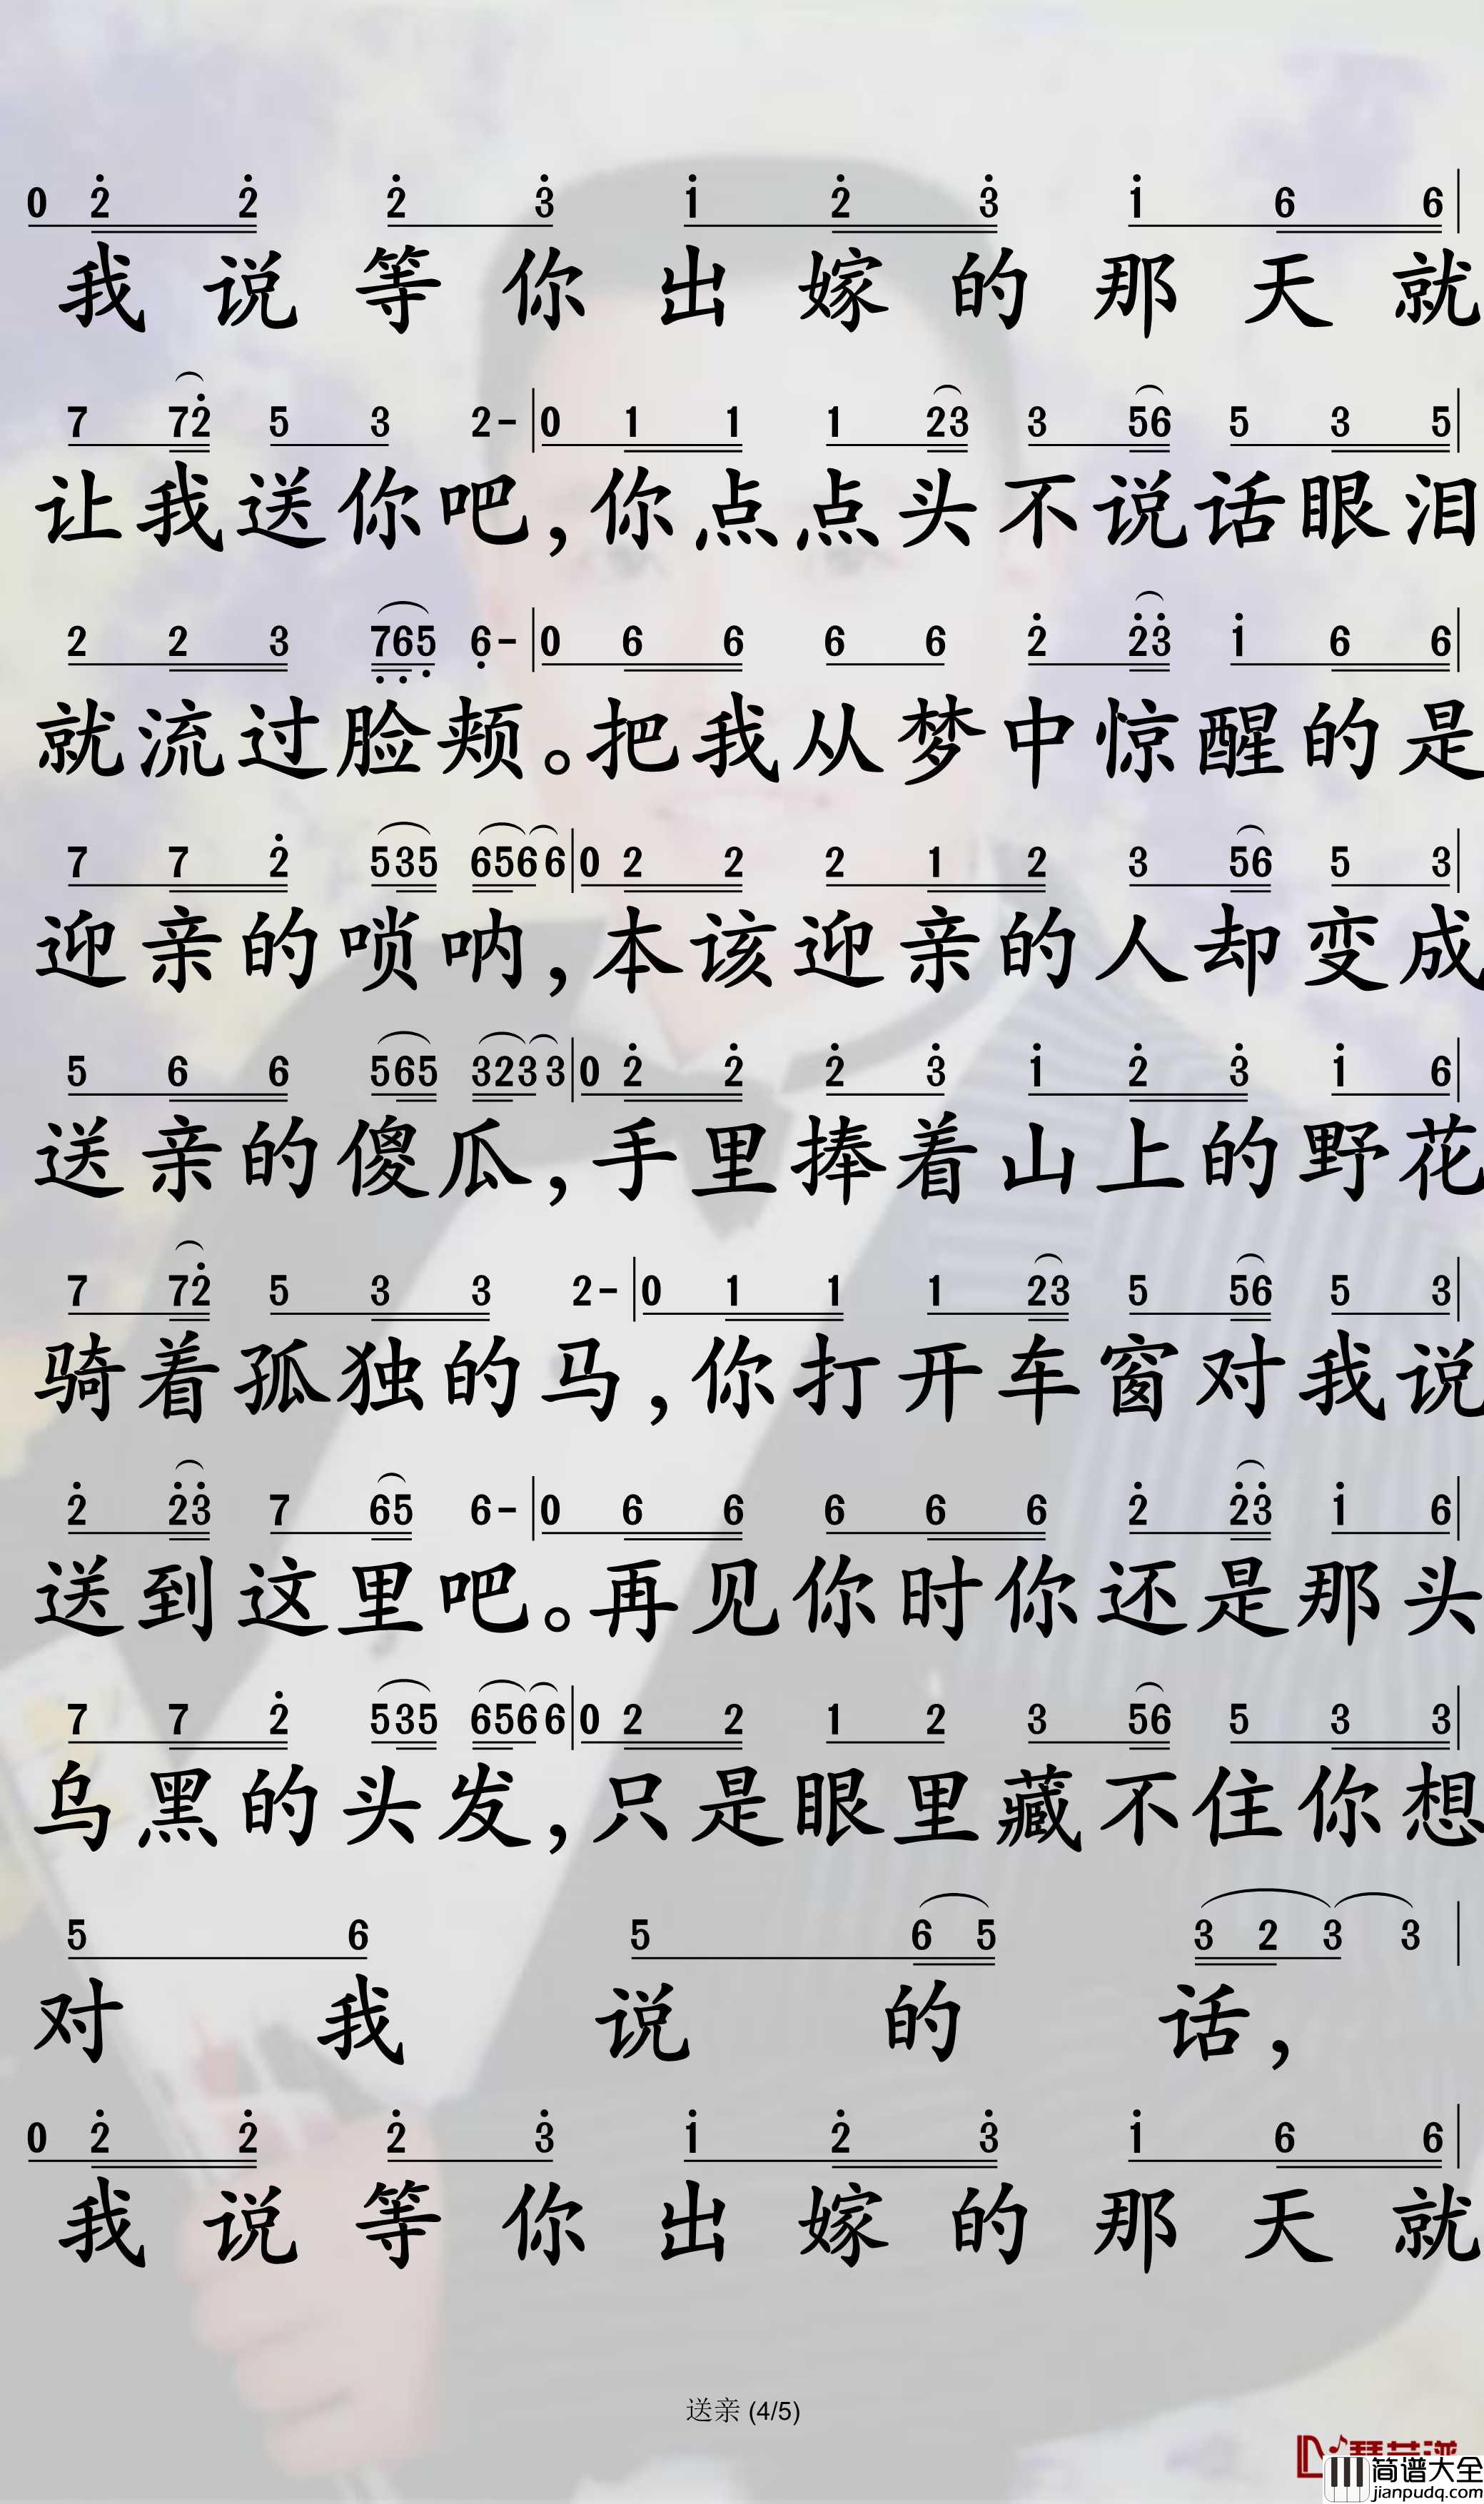 0 2 2 2 3 1 2 3 1 6 6
我说等你出嫁的那天就
7 72 5 3 2- 0 1 1 1 23 3 56 5 3 5
让我送你吧,你点点头不说话眼泪
2 2 3 765 6- 0 6 6 6 6 2 23 1 6 6
就流过脸颊。把我从梦中惊醒的是
7 7 2 535 6566 0 2 2 2 1 2 3 56 5 3
迎亲的唢呐,本该迎亲的人却变成
5 6 6 565 3233 0 2 2 2 3 1 2 3 1 6
送亲的傻瓜,手里捧着山上的野花
7 72 5 3 3 2- 0 1 1 1 23 5 56 5 3
骑着孤独的马,你打开车窗对我说
2 23 7 65 6- 0 6 6 6 6 6 2 23 1 6
送到这里吧。再见你时你还是那头
7 7 2 535 6566 0 2 2 1 2 3 56 5 3 3
乌黑的头发,只是眼里藏不住你想
5 6 5 6 5 3 2 3 3
对我说的话,
0 2 2 2 3 1 2 3 1 6 6
我说等你出嫁的那天就
送亲 (4/5)
简谱大全
jianpudq.com